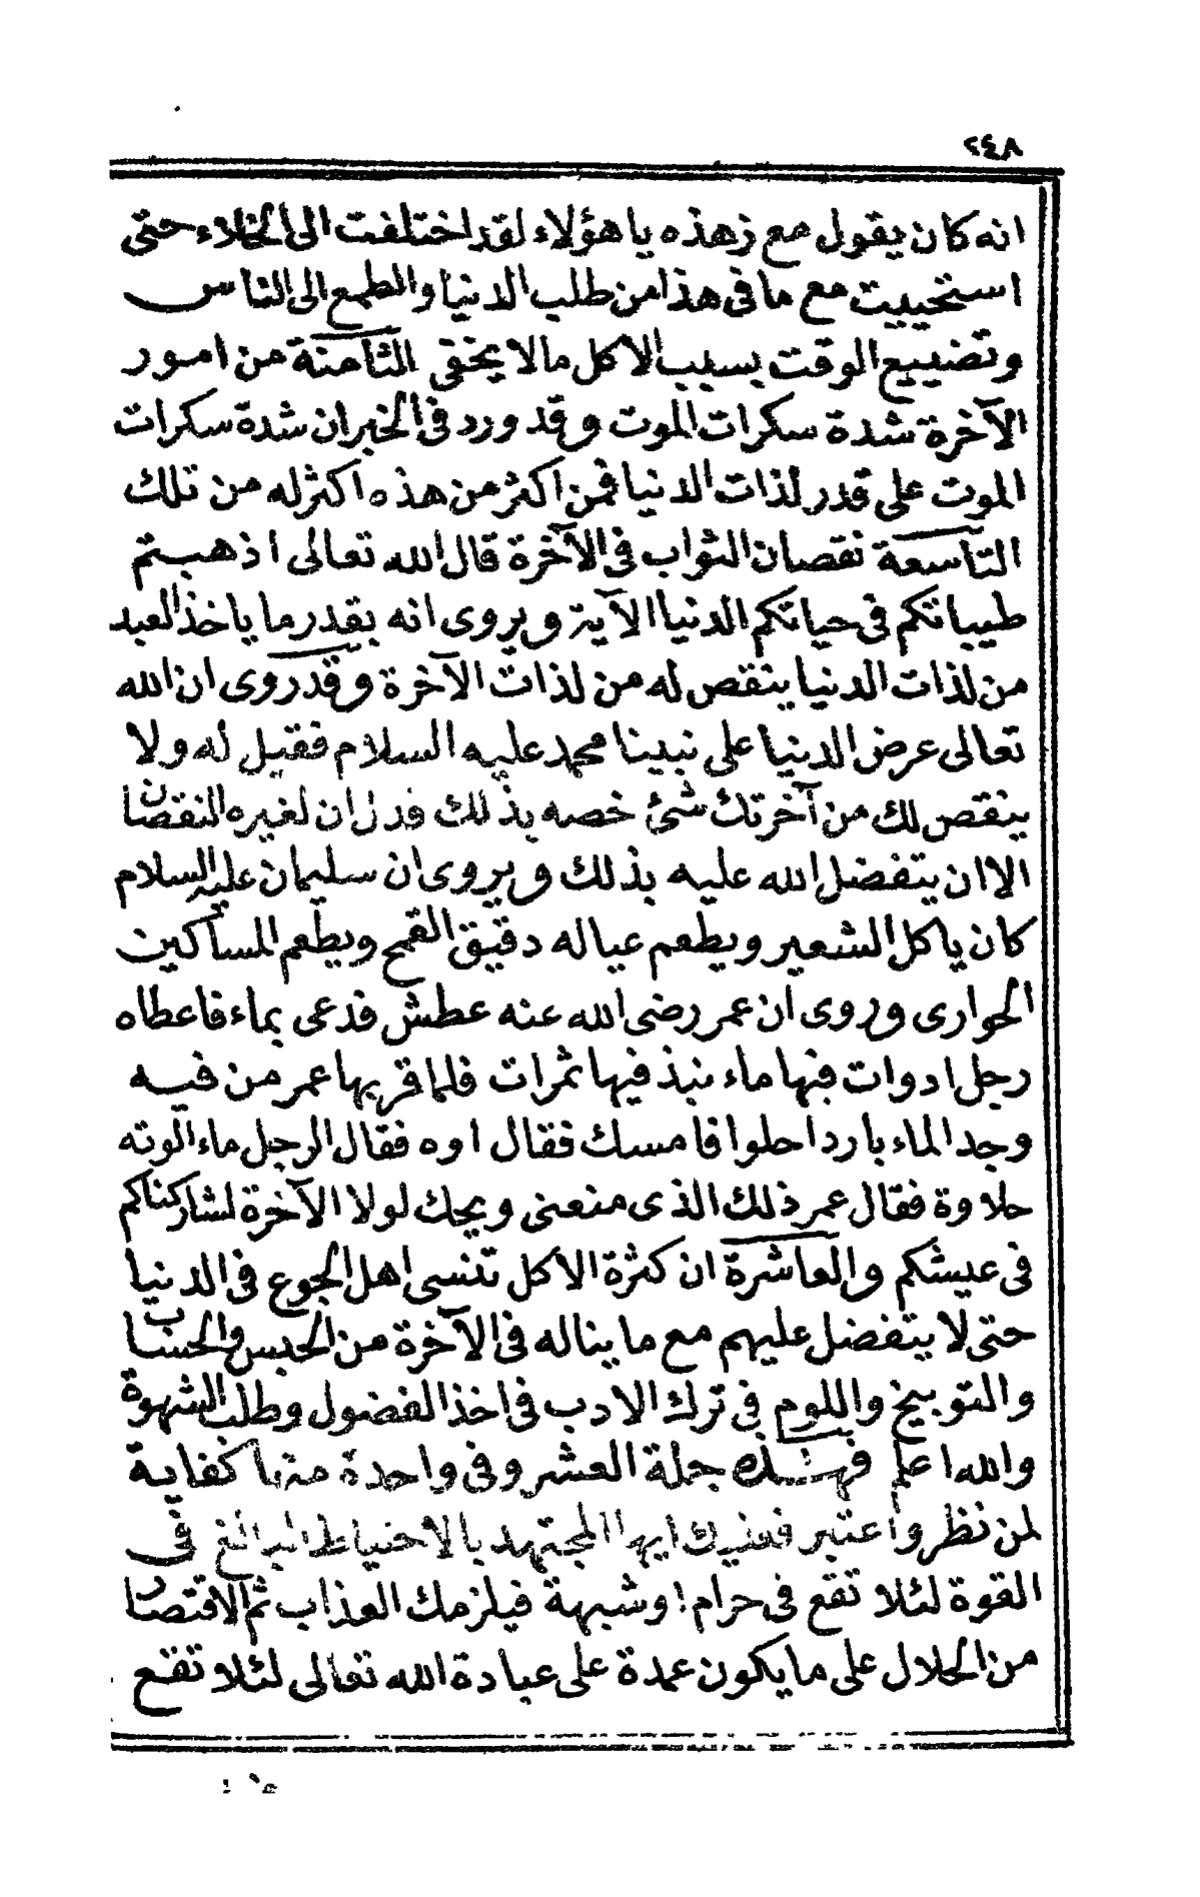 ٢٤٨
انه كان يقول مع زهذه يا هؤلاء لقد اختلفت الى الخلاء حتى
استحييت مع ما فى هذا من طلب الدنيا والطمع الى الناس
وتضييع الوقت بسبب الاكل مالا يخفى الثامنة من امور
الآخرة شدة سكرات الموت وقد ورد فى الخبر ان شدة سكرات
الموت على قدر لذات الدنيا فمن اكثر من هذه اكثر له من تلك
التاسعة نقصان الثواب فى الآخرة قال الله تعالى اذهبتم
طيباتكم فى حياتكم الدنيا الآية ويروى انه بقدر ما ياخذ العبد
من لذات الدنيا ينقص له من لذات الآخرة وقد روى ان الله
تعالى عرض الدنيا على نبينا محمد عليه السلام فقيل له ولا
ينقص لك من آخرتك شئ خصه بذلك فدل ان لغيره النقصان
الا ان يتفضل الله عليه بذلك ويروى ان سليمان عليه السلام
كان ياكل الشعير ويطعم عياله دقيق القمح ويطعم المساكين
الحوارى وروى ان عمر رضى الله عنه عطش فدعى بماء فاعطاه
رجل ادوات فيها ماء نبذ فيها ثمرات فلما قر بها عمر من فيه
وجد الماء باردا حلوا فامسك فقال اوه فقال الرجل ماء الوته
حلاوة فقال عمر ذلك الذى منعنى ويحك لولا الآخرة لشاركناكم
فى عيشكم والعاشرة ان كثرة الاكل تنسى اهل الجوع فى الدنيا
حتى لا يتفضل عليهم مع ما يناله فى الآخرة من الحبس والحساب
والتوبيخ واللوم فى ترك الادب فى اخذ الفضول وطلب الشهوة
والله اعلم فهذه جملة العشر وفى واحدة منها كفاية
لمن نظر واعتبر فعليك ايها المجتهد بالاحتياط البالغ فى
القوة لئلا تقع فى حرام او شبهة فيلزمك العذاب ثم الاقتصار
من الحلال على ما يكون عمدة على عبادة الله تعالى لئلا تقع